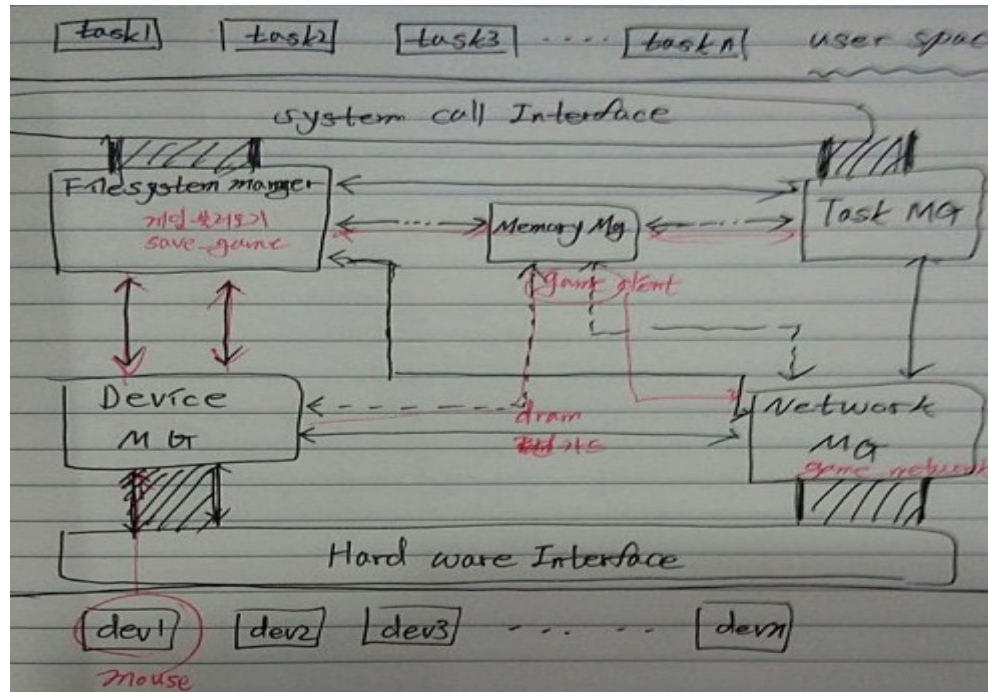 task1 task2 task3 ..... task n user spac
system call Interface
Filesystem manger
게임 불러오기
save_game
Memory Mg
Task MG
game client
Device
MG
dram
Network
MG
game network
Hard ware Interface
dev1 dev2 dev3 - ... .. devn
mouse